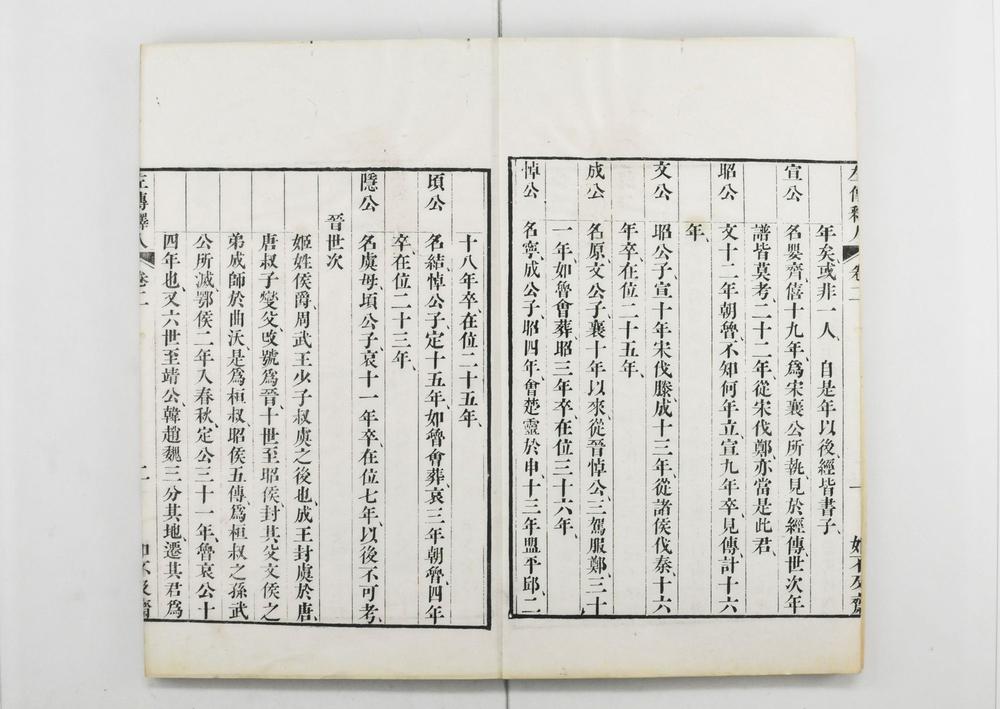 左傳釋人 卷二 一 如不及齋
年矣或非一人、自是年以後、經皆書子、
宣公 名嬰齊、僖十九年、爲宋襄公所執、見於經傳世次年
譜皆莫考、二十二年、從宋伐鄭、亦當是此君、
昭公 文十二年朝魯、不知何年立、宣九年卒見傳、計十六
年、
文公 昭公子、宣十年宋伐滕、成十三年、從諸侯伐秦、十六
年卒、在位二十五年、
成公 名原、文公子、襄十年以來、從晉悼公、三駕服鄭、三十
一年、如魯會葬、昭三年卒、在位三十六年、
悼公 名寧、成公子、昭四年會楚靈於申、十三年盟平邱、二
十八年卒、在位二十五年、
頃公 名結、悼公子、定十五年、如魯會葬、哀三年朝魯、四年
卒、在位二十三年、
隱公 名虞毋、頃公子、哀十一年卒、在位七年、以後不可考、
晉世次
姬姓侯爵、周武王少子叔虞之後也、成王封虞於唐、
唐叔子燮父、改號爲晉、十世至昭侯、封其父文侯之
弟成師於曲沃、是爲桓叔、昭侯五傳、爲桓叔之孫武
公所滅、鄂侯二年入春秋、定公三十一年、魯哀公十
四年也、又六世至靖公、韓趙魏三分其地、遷其君爲
左傳釋人 卷二 二 如不及齋